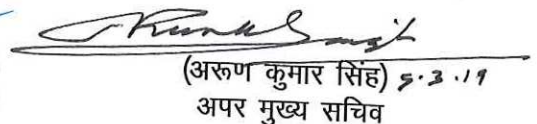 (अरूण कुमार सिंह) 5.3.19
अपर मुख्य सचिव